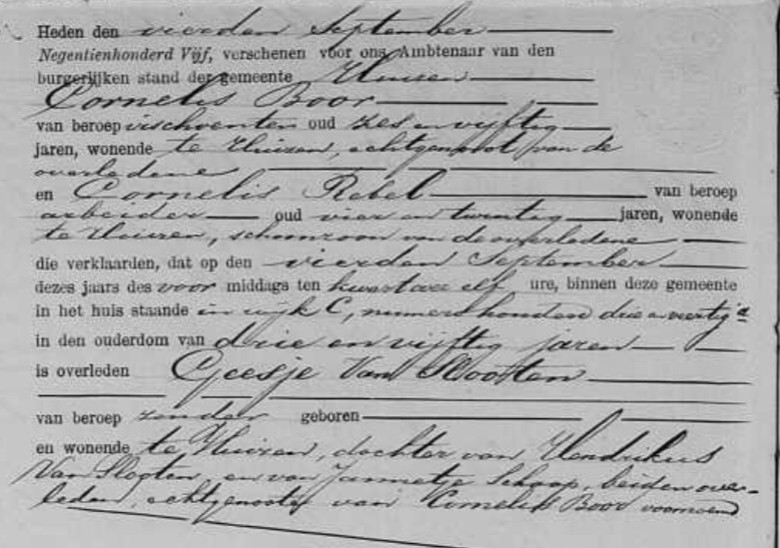 Heden den vierden September
Negentienhonderd Vijf, verschenen vóór ons Ambtenaar van den
burgerlijken stand der gemeente Huizen
Cornelis Boor
van beroep vischventer oud zes en vijftig
jaren, wonende te Huizen, echtgenoot van de
overledene
en Cornelis Rebel van beroep
arbeider oud vier en twintig jaren, wonende
te Huizen, schoonzoon van de overledene
die verklaarden, dat op den vierden September
dezes jaars des voor middags ten kwart over elf ure, binnen deze gemeente
in het huis staande in wijk C, numero honderd drie en veertig a
in den ouderdom van drie en vijftig jaren
is overleden Geesje Van Slooten
van beroep zonder geboren
en wonende te Huizen, dochter van Hendrikus
Van Slooten, en van Jannetje Schaap, beiden over-
leden, echtgenoote van Cornelis Boor voornoemd